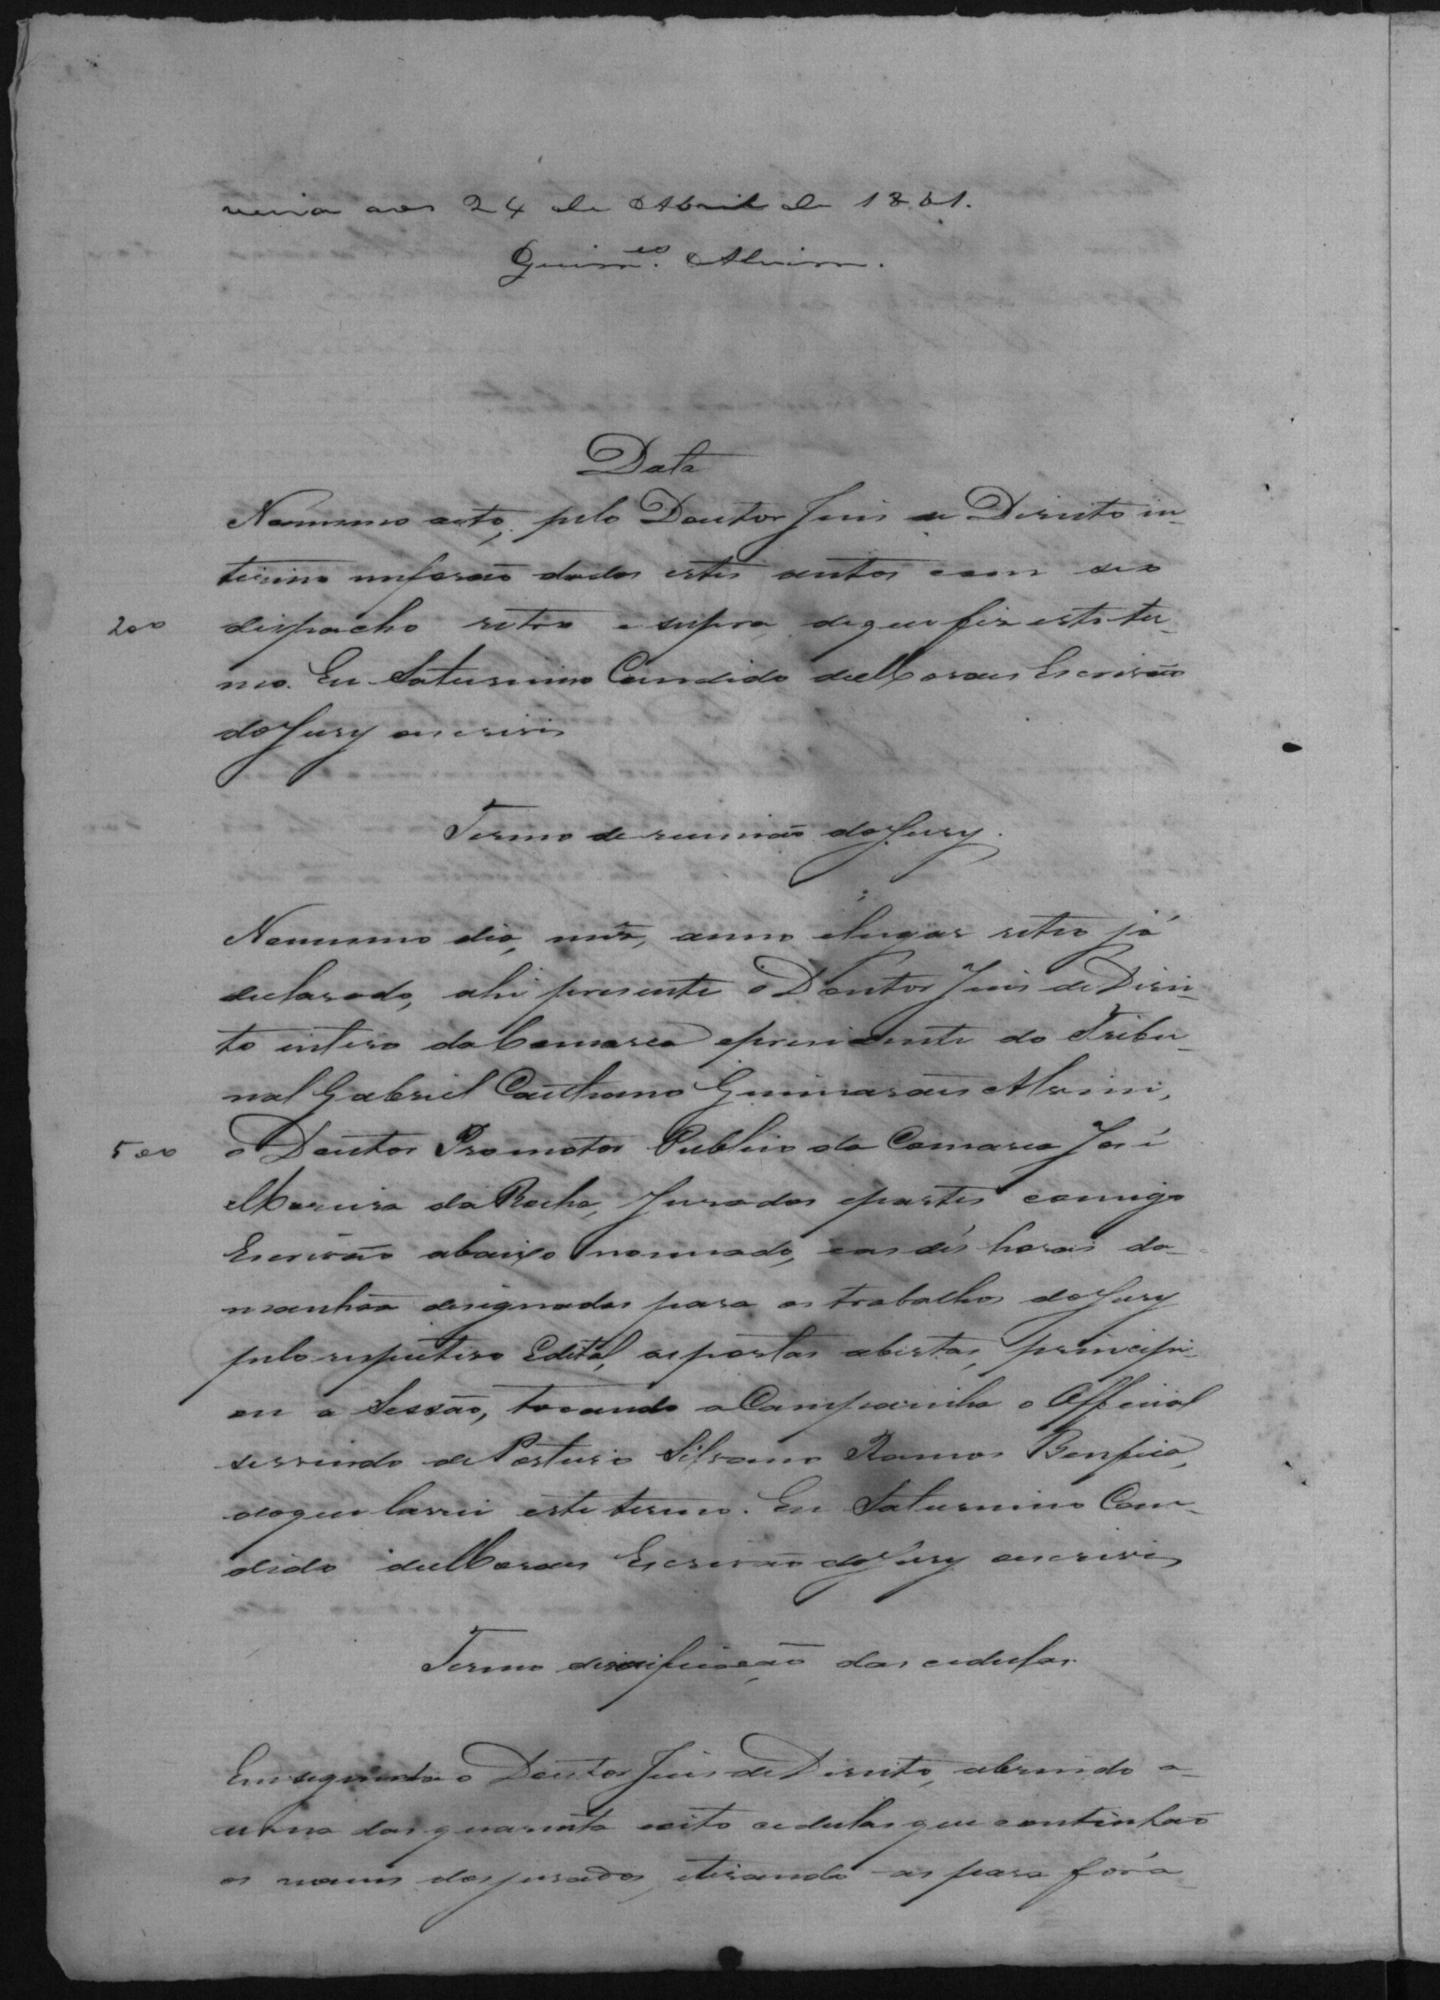 aos 24 de Abril de 1881.
Guim.es Alvim.
Data
No mesmo acto, pelo Doutor Juis de Direito in-
terino me forão dados estes autos com seo
200 despacho retro e supra, de que fis este ter-
mo. Eu Saturnino Candido de Moraes Escrivão
do Jury escrivi
Termo de reunião do Jury.
No mesmo dia, mês, anno e lugar retro já
declarado, ahi presente o Doutor Juis de Direi-
to intero da Comarca e presidente do Tribu-
nal Gabriel Caethano Guimarães Alvim,
500 o Doutor Promotor Publico da Comarca José
Moreira da Rocha, Jurados e partes comigo
Escrivão abaixo nomeado, e as dés horas da
manhãa designadas para os trabalhos do Jury
pelo respectivo Edital, as portas abertas, principi-
ou a Sessão, tocando a Campainha o Official
servindo de Porteiro Silvano Ramos Benfica,
do que lavrei este termo. Eu Saturnino Can-
dido de Moraes Escrivão do Jury escrivi
Termo de verificação das cedulas.
Em seguida o Doutor Juis de Direito, abrindo a
urna das quarenta e oito cedulas que continhão
os nomes dos jurados, e tirando-as para fóra